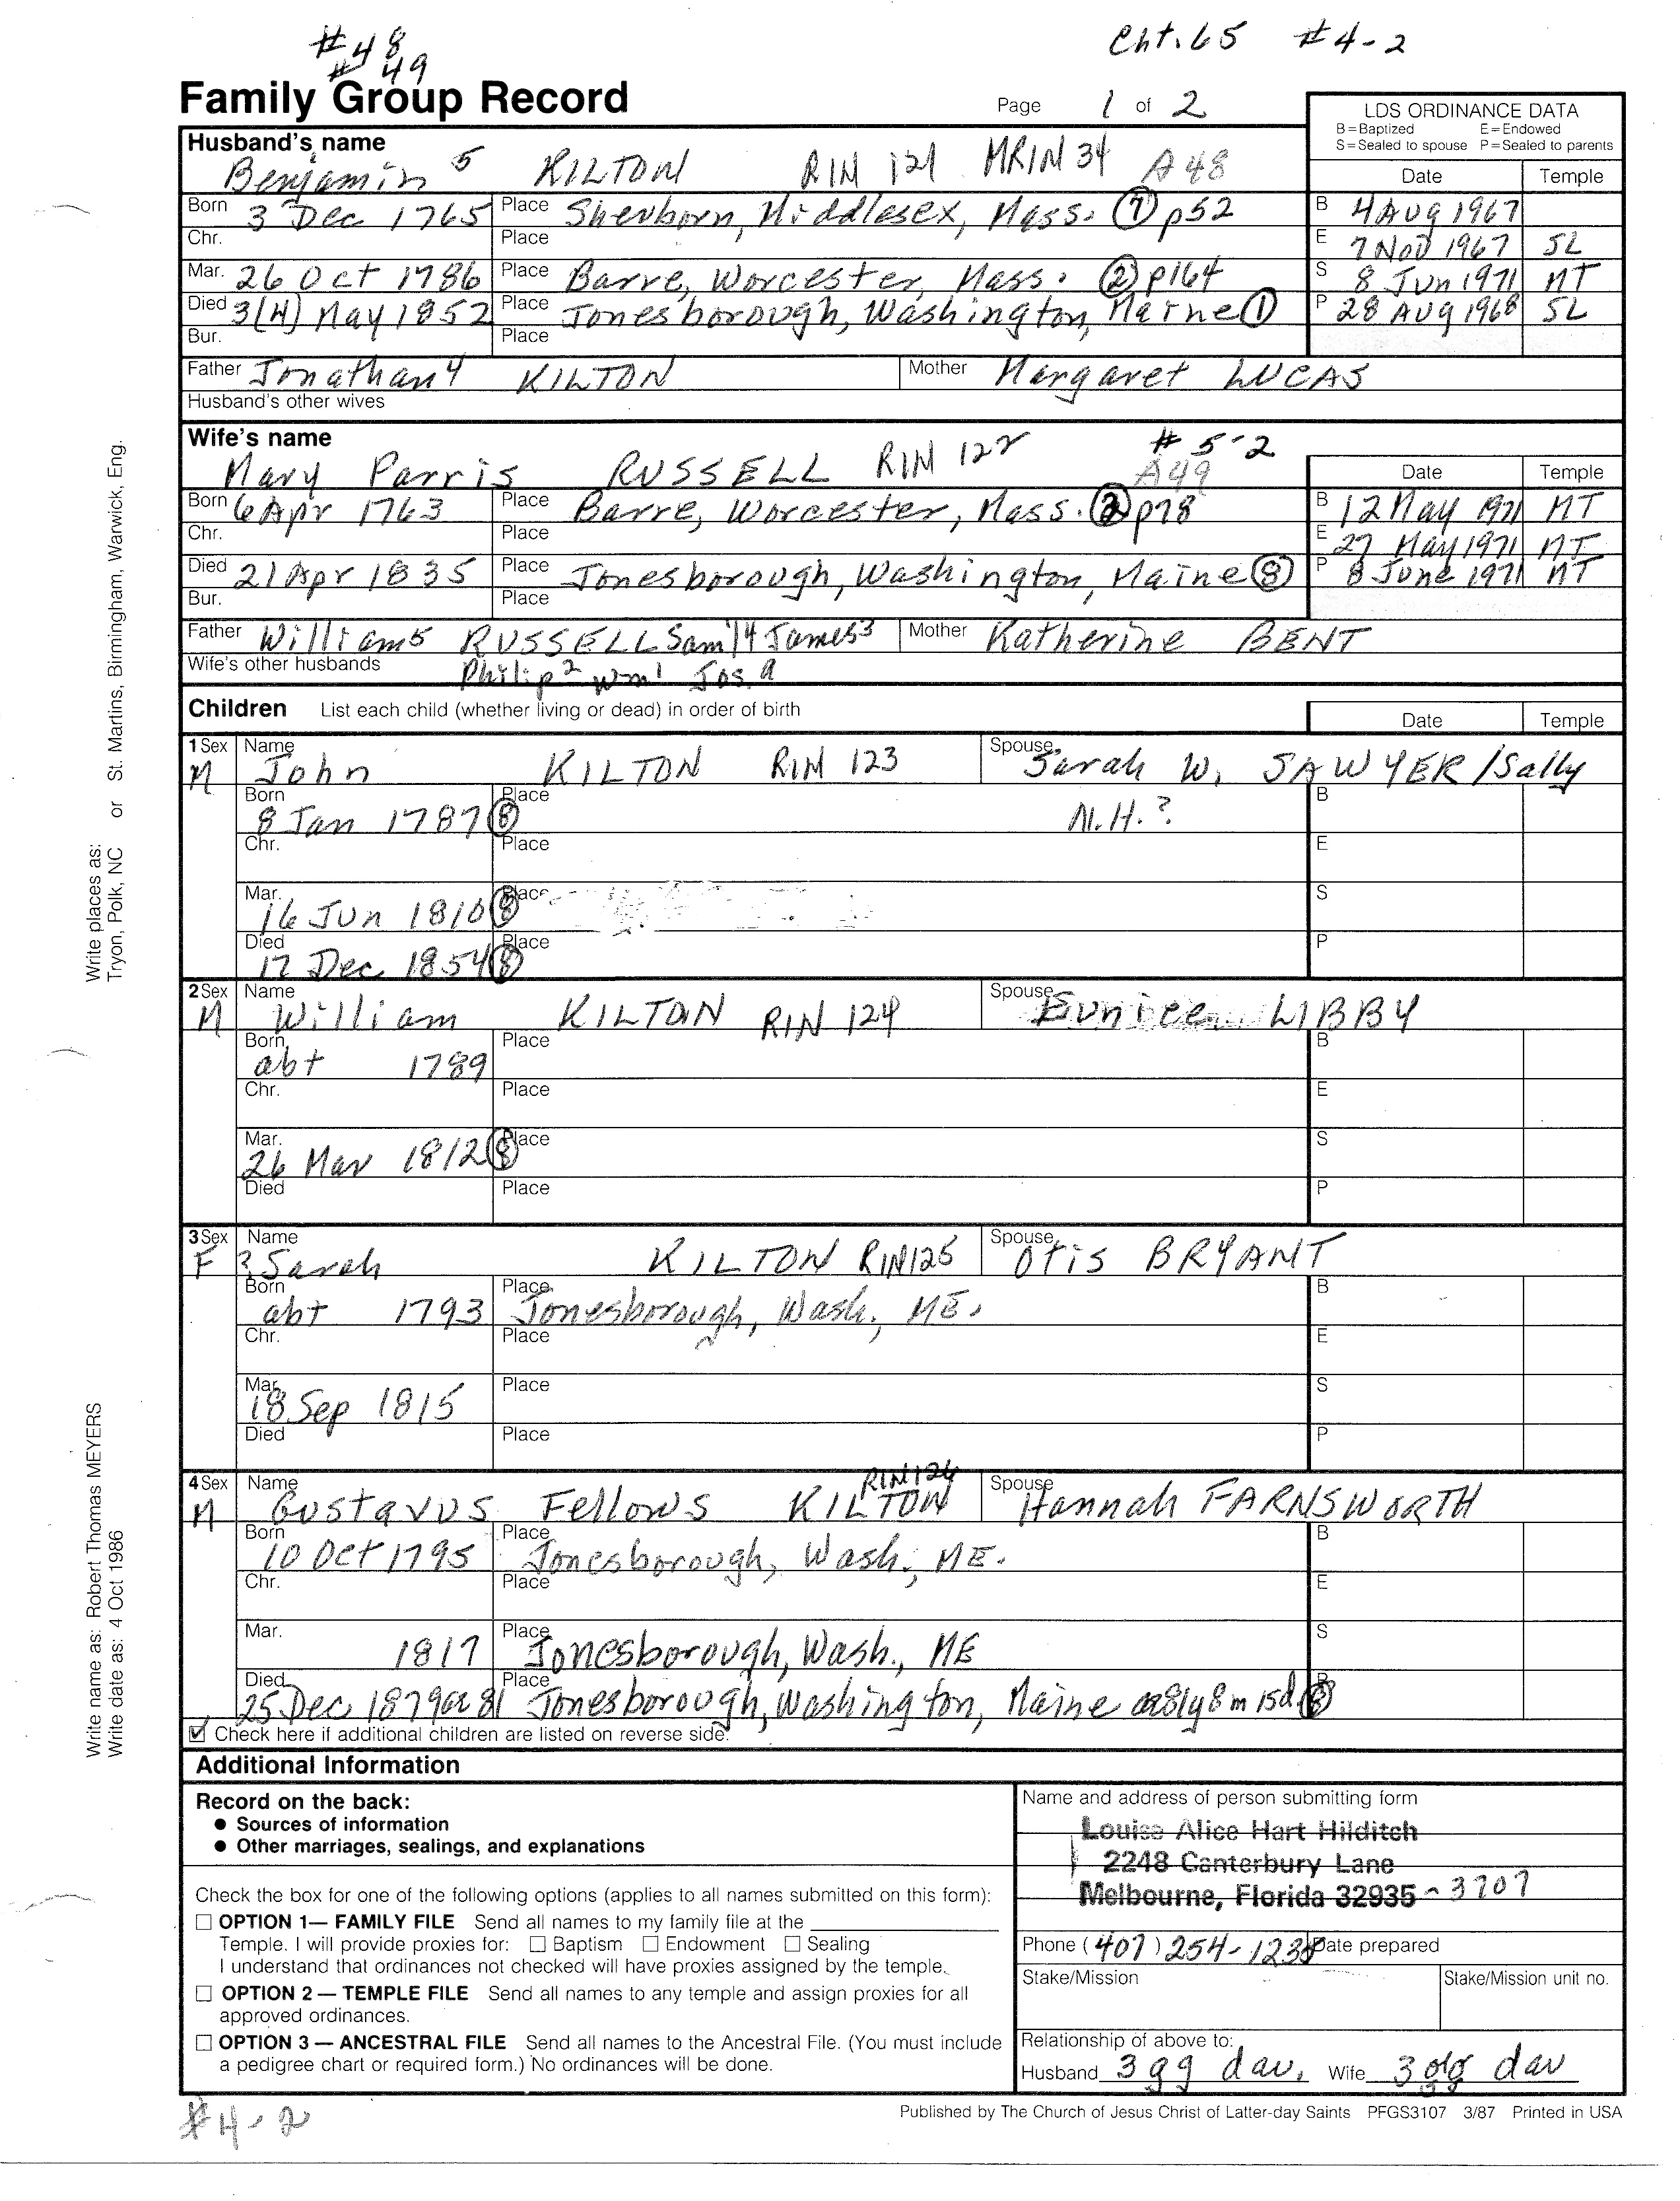 #48
#49
Cht. 65 #4-2
Family Group Record
Page 1 of 2
LDS ORDINANCE DATA
B=Baptized E=Endowed
S=Sealed to spouse P=Sealed to parents
Husband's name
Benjamin 5 KILTON RIN 121 MRIN 34 A48
Date Temple
Born 3 Dec 1765 Place Sherborn, Middlesex, Mass. (1) p52 B 4 Aug 1967
Chr. Place E 7 Nov 1967 SL
Mar. 26 Oct 1786 Place Barre, Worcester, Mass. (2) p164 S 8 Jun 1971 MT
Died 3(4) May 1852 Place Jonesborough, Washington, Maine (1) P 28 AUG 1968 SL
Bur. Place
Father Jonathan 4 KILTON Mother Margaret LUCAS
Husband's other wives
Wife's name
# 5-2
Mary Parris RUSSELL RIN 122 A49
Date Temple
Born 6 Apr 1763 Place Barre, Worcester, Mass. (2) p78 B 12 May 1971 MT
Chr. Place E 27 May 1971 MT
Died 21 Apr 1835 Place Jonesborough, Washington, Maine (8) P 8 June 1971 MT
Bur. Place
Father William5 RUSSELL Sam'l4 James3 Mother Katherine BENT
Wife's other husbands Philip2 Wm1 Jos. a
Children List each child (whether living or dead) in order of birth
Date Temple
1 Sex Name Spouse
M John KILTON RIN 123 Sarah W. SAWYER /Sally
Born Place B
8 Jan 1787 (8) N.H.?
Chr. Place E
Mar. Place S
16 Jun 1810 (8)
Died Place P
17 Dec 1854 (8)
2 Sex Name Spouse
M William KILTON RIN 124 Eunice LIBBY
Born Place B
abt 1789
Chr. Place E
Mar. Place S
26 Mar 1812 (8)
Died Place P
3 Sex Name Spouse
F 3 Sarah KILTON RIN125 Otis BRYANT
Born Place B
abt 1793 Jonesborough, Wash., ME.
Chr. Place E
Mar. Place S
18 Sep 1815
Died Place P
RIN 126
4 Sex Name Spouse
M Gustavus Fellows KILTON Hannah FARNSWORTH
Born Place B
10 Oct 1795 Jonesborough, Wash., ME.
Chr. Place E
Mar. Place S
1817 Jonesborough, Wash., ME
Died Place P
25 Dec 1879 or 81 Jonesborough, Washington, Maine ae 81y 8m 15d (8)
☑ Check here if additional children are listed on reverse side.
Additional Information
Record on the back:
● Sources of information
● Other marriages, sealings, and explanations
Check the box for one of the following options (applies to all names submitted on this form):
☐ OPTION 1— FAMILY FILE Send all names to my family file at the
Temple. I will provide proxies for: ☐ Baptism ☐ Endowment ☐ Sealing
I understand that ordinances not checked will have proxies assigned by the temple.
☐ OPTION 2 — TEMPLE FILE Send all names to any temple and assign proxies for all
approved ordinances.
☐ OPTION 3 — ANCESTRAL FILE Send all names to the Ancestral File. (You must include
a pedigree chart or required form.) No ordinances will be done.
Name and address of person submitting form
Louise Alice Hart Hilditch
2248 Canterbury Lane
Melbourne, Florida 32935 - 3707
Phone (407) 254-1238 Date prepared
Stake/Mission Stake/Mission unit no.
Relationship of above to:
Husband 3 gg dau. Wife 3 gg dau
Published by The Church of Jesus Christ of Latter-day Saints PFGS3107 3/87 Printed in USA
#4-2
Write places as: Tryon, Polk, NC or St. Martins, Birmingham, Warwick, Eng.
Write name as: Robert Thomas MEYERS
Write date as: 4 Oct 1986